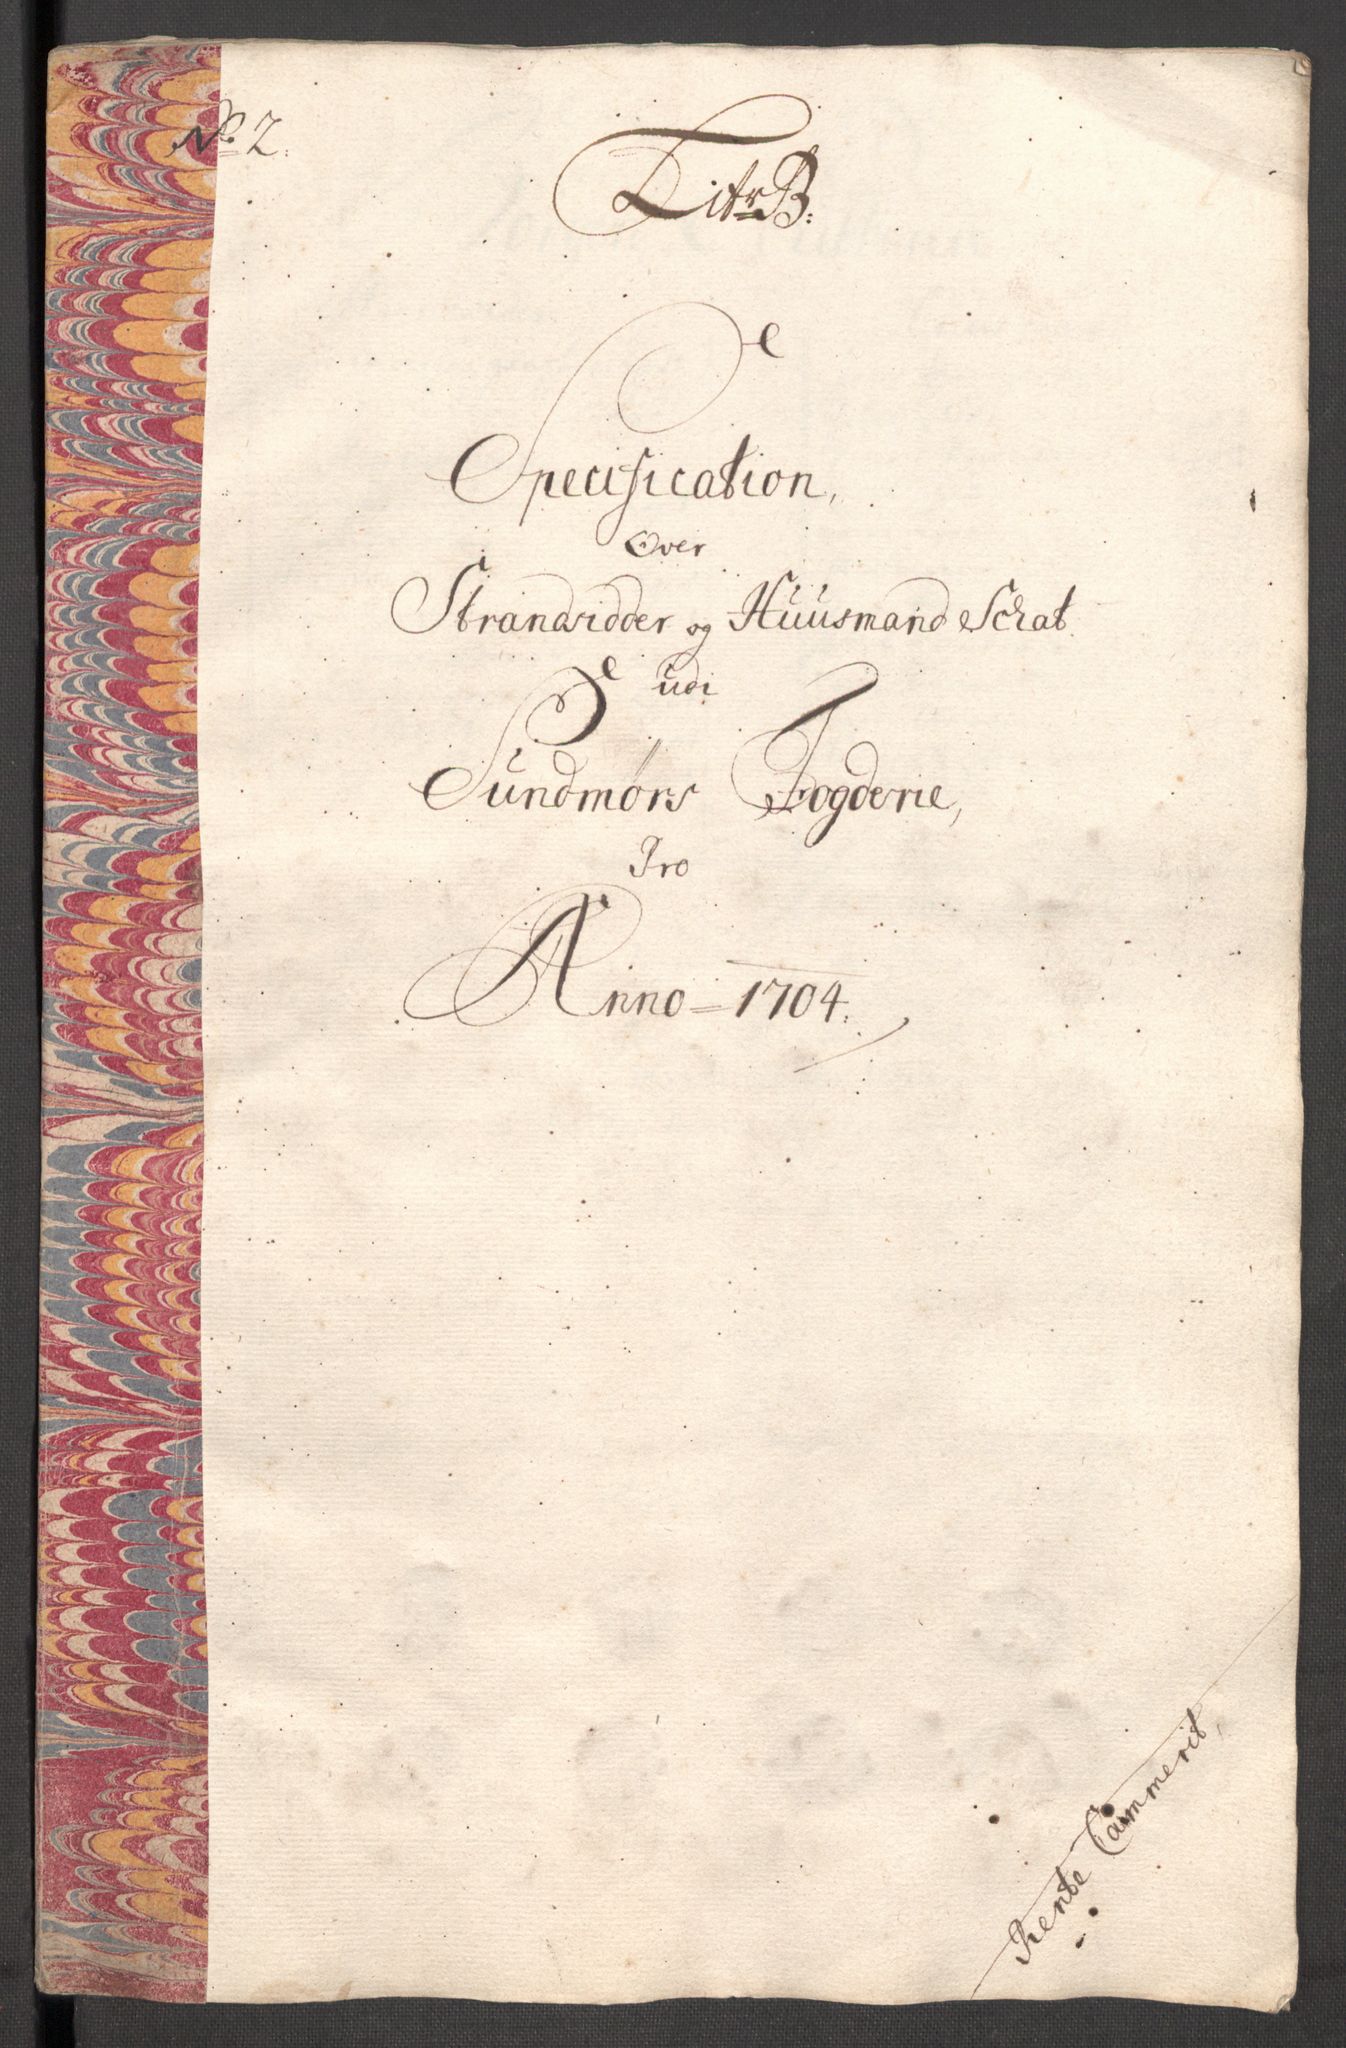 No 2.
Litr B:
Specification,
Over
Strandsidder og Huusmand Schat
udi
Sundmørs Fogderie,
Pro
Anno 1704.
Rente Cammerit,